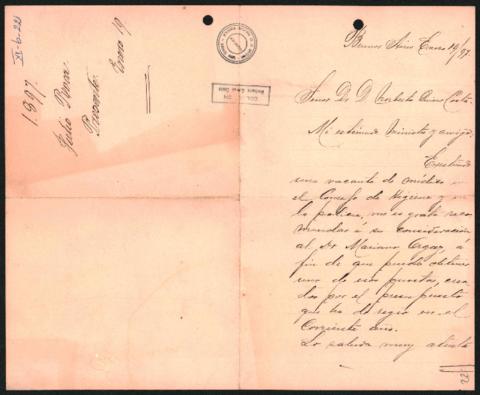 1.897.
Julio Roca
Presente. Enero 19
VI-6-22
Buenos Aires Enero 19/97.
Señor Dr D. Norberto Quirno Costa.
Mi estimado Ministro y amigo.
Existiendo
una vacante de médico en
el Consejo de Higiene y en
la policia, me es grato reco
mendar á su consideración
al Dr Mariano á
fin de que pueda obtener
uno de esos puestos, crea
dos por el presupuesto
que ha de regir en el
Corriente año.
Lo saluda muy atenta
22